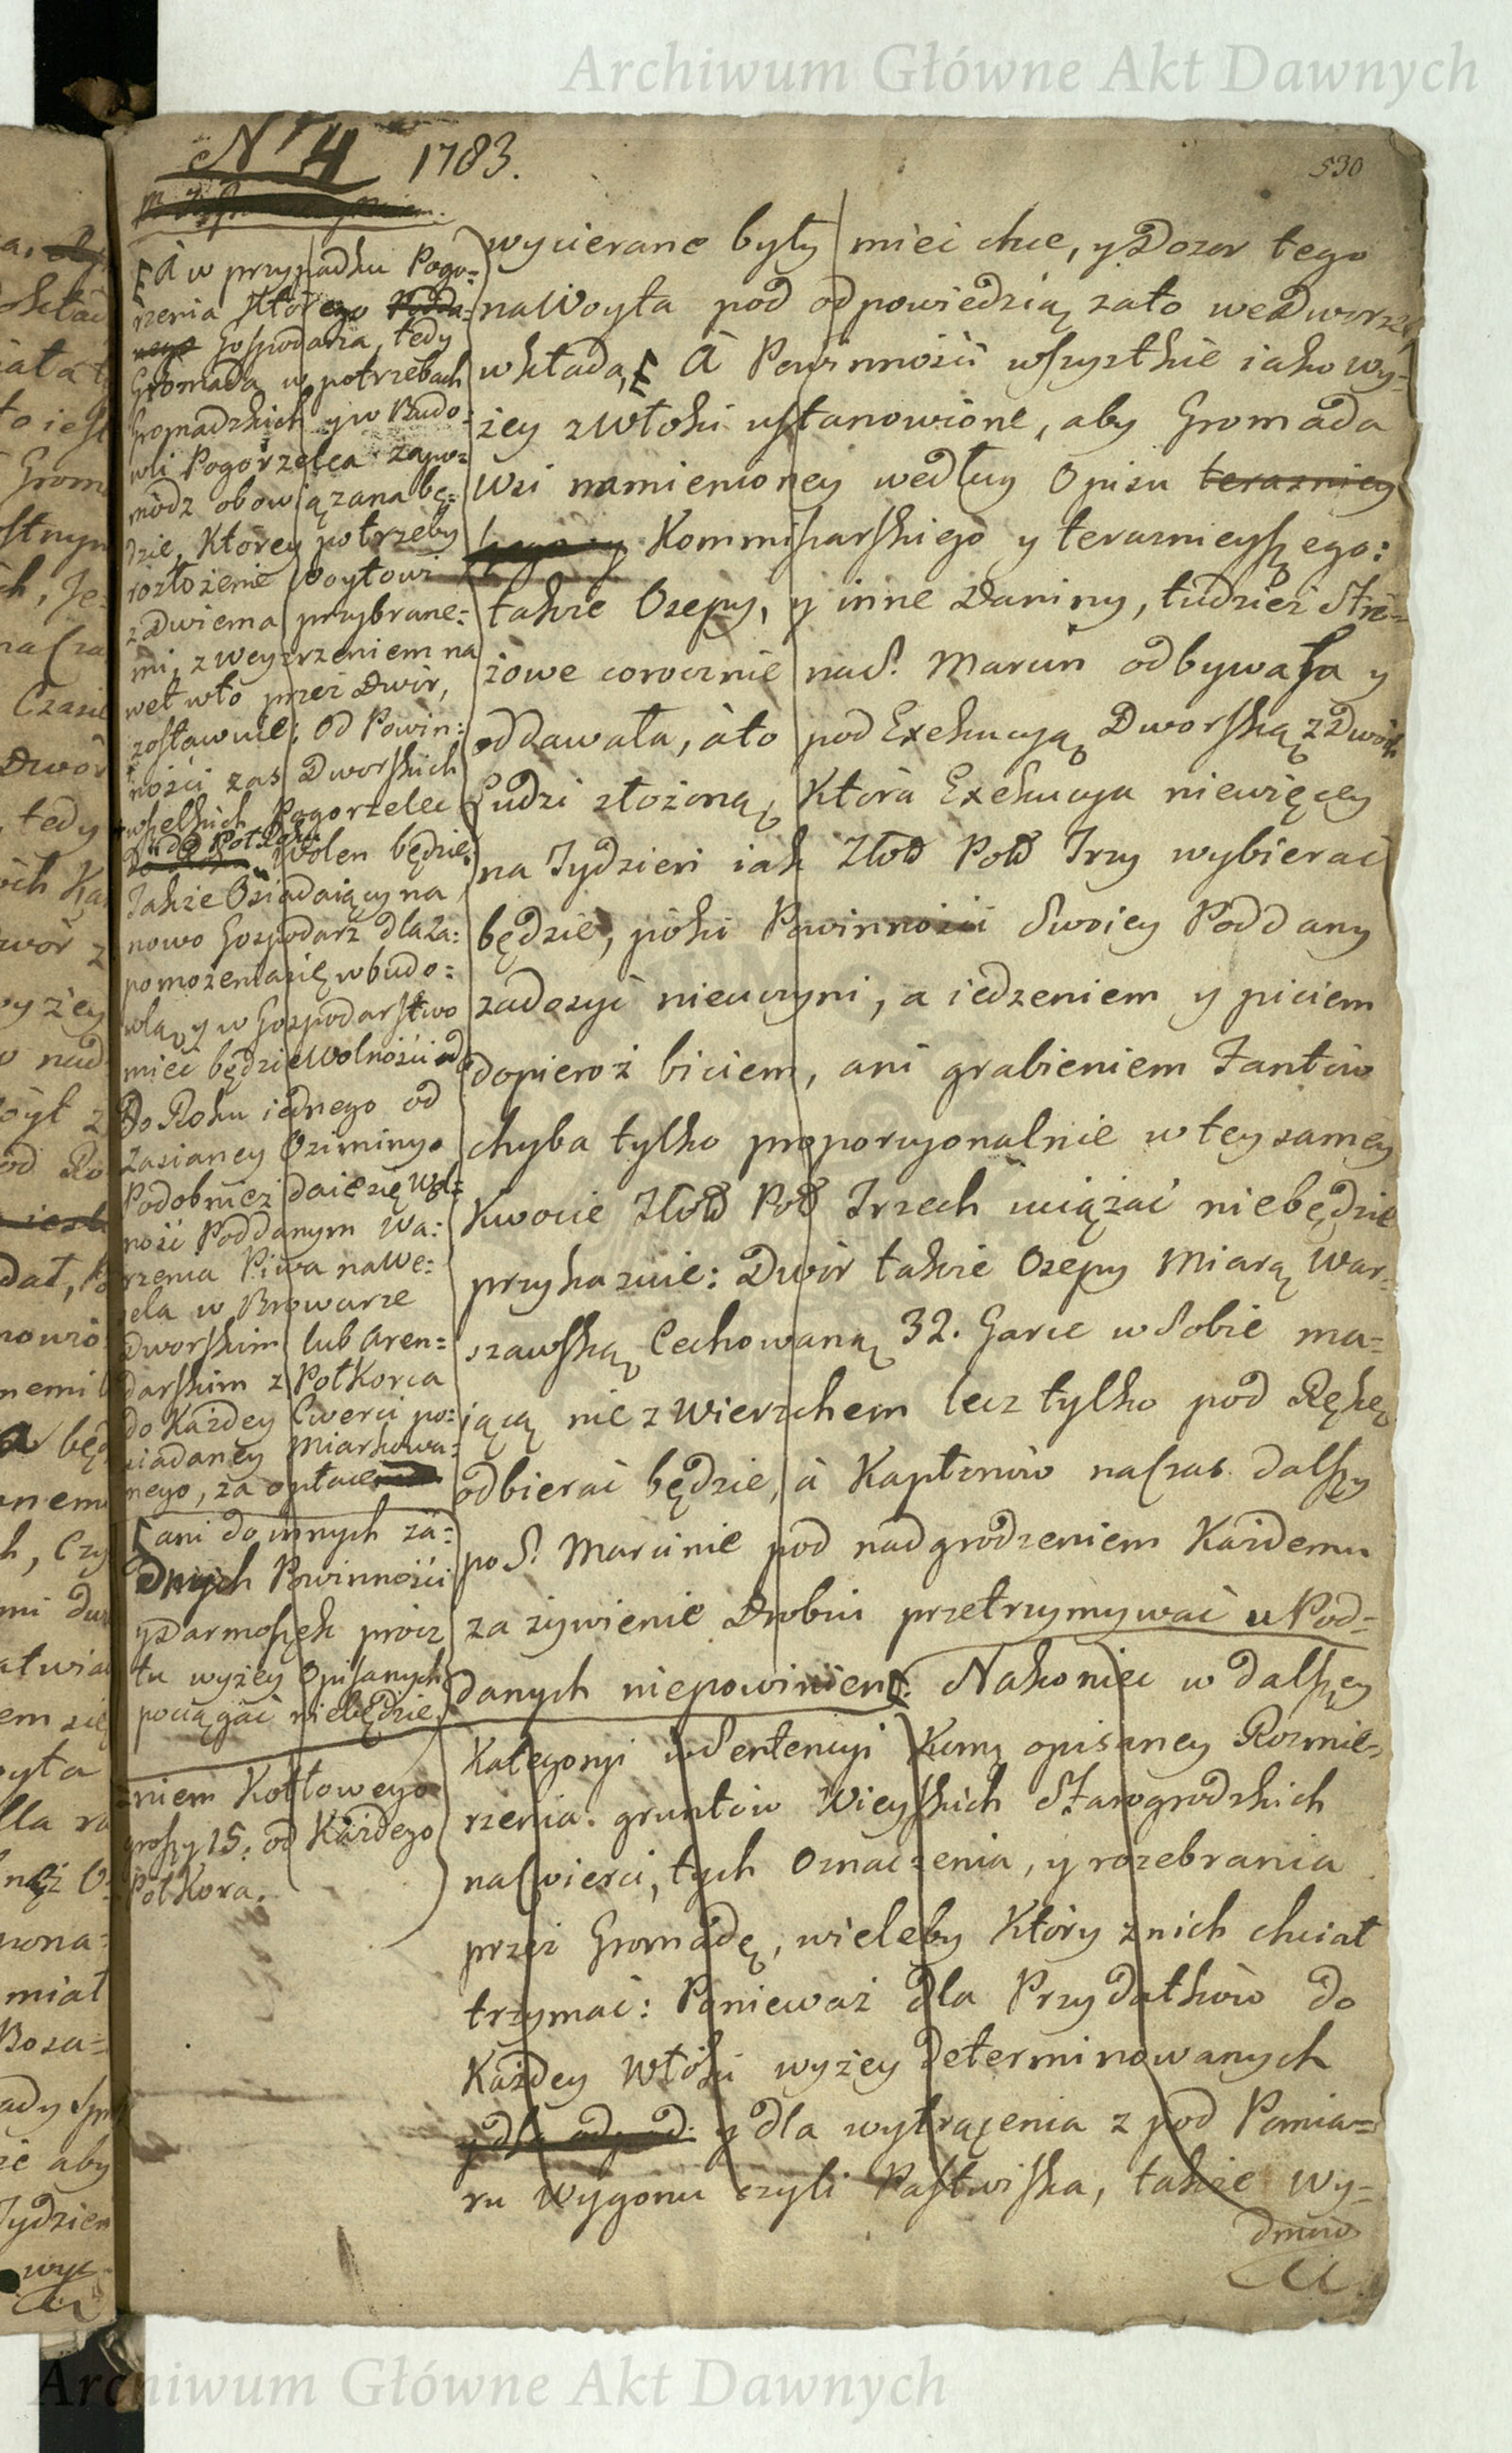 Archiwum Główne Akt Dawnych
N 4 1783.
530
A w przypadku Pogo=
rzenia Ktorego
Gospodarza, tedy
Gromada w potrzebach
Gromadzkich y w Budo=
wli Pogorzelca zapo=
módz obowiązana bę=
dzie, Ktorey potrzeby
rozłożenie Woytowi
z Dwiema przybrane=
mi, z weyzrzeniem na
wet wto przez Dwór,
zostawuie; od Powin=
ności zas Dworskich
wszelkich Pogorzelec
Pół Roku Wolen będzie
Takze Osiadaiący na
nowo Gospodarz dla Za=
pomożenia się w budo=
wlą y w Gospodarstwo
mieć będzie Wolności od
Do Roku iednego od
Zasianey Oziminy.
Podobnież daie się Wol=
ność Poddanym Wa=
rzenia Piwa na We=
sela w Browarze
Dworskim lub Aren=
darskim z Połkorca
do Każdey Cwerci po=
siadaney Miarkowa=
nego, za opłace
ani do innych ża=
dnych Powinności
y Darmoszek procz
tu wyżey Opisanych
pociągać niebędzie.
niem Kotłowego
groszy 15: od Każdego
Poł Korca.
wycierane były mieć chce, y Dozor tego
na Woyta pod odpowiedzią zato we Dworze
wkłada, A Powinności wszystkie iako wy=
żey z Włoki ustanowione, aby Gromada
Wsi namienioney według Opisu terazniey
Kommisarskiego y teraznieyszego:
takze Osepy, y inne Daniny, tudzież Stró=
żowe corocznie na S. Marcin odbywała y
oddawała, á to pod Exekucyą Dworską z Dwóch
Ludzi złożoną, Która Exekucya niewięcey
na Tydzień iak Złotł Pol Trzy wybierać
będzie, póki Powinności Swoiey Poddany
zadosyć nieuczyni, a iedzeniem y piciem
dopieroż biciem, ani grabieniem Fantów
chyba tylko proporcyonalnie w tey samey
Kwocie Złot Pol Trzech uciążać niebędzie
przykazuie: Dwór takze Osepy Miarą War=
szawską Cechowaną 32. Garce w Sobie ma=
iącą nie z Wierzchem lecz tylko pod Rękę
odbierać będzie, á Kapłonów na Czas dalszy
po S. Marcinie pod nadgrodzeniem Każdemu
za żywienie Drobiu przetrzymywać u Pod=
danych niepowinien. Nakoniec w dalszey
Kategoryi w Sentencyi Kom opisaney Rozmie=
rzenia gruntów Wieyskich Starogrodzkich
na Cwierci, tych Oznaczenia, y rozebrania
przez Gromadę, wieleby Który z nich chciał
trzymać: Ponieważ dla Przydatków do
Każdey Włóki wyżey determinowanych
y dla wytrącenia z pod Pomia=
ru Wygonu czyli Pastwiska, takze Wy=
dmuw
Archiwum Główne Akt Dawnych